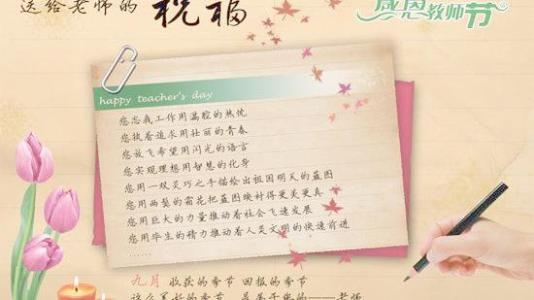 送给老师的 祝福
感恩教师节
happy teacher's day
您忘我工作用满腔的热忱
您执着追求用壮丽的青春
您放飞希望用闪光的语言
您实现理想用智慧的化身
您用一双灵巧之手描绘出祖国明天的蓝图
您用两鬓的霜花把蓝图映衬得更美更真
您用巨大的力量推动着社会飞速发展
您用毕生的精力推动着人类文明的快速前进
九月 收获的季节 回报的季节
这么美好的季节 是属于您的——老师